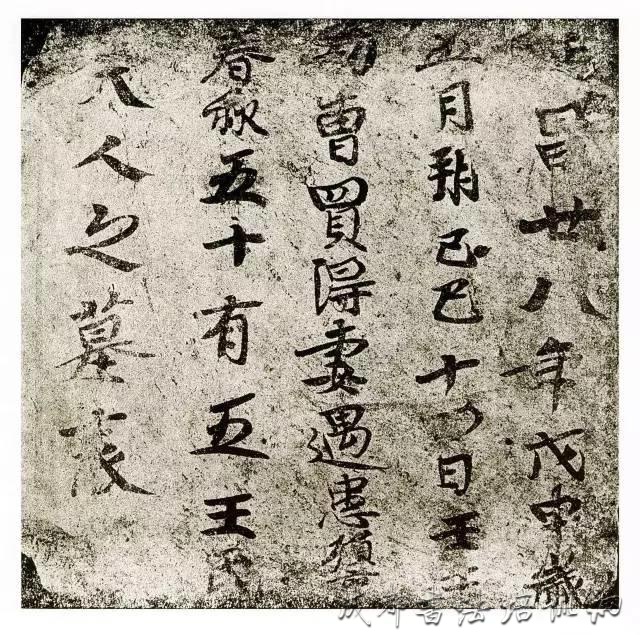 昌廿八年戊申歲
五月朔己巳十日壬
功曹買得妻遇患殞
春秋五十有五王氏
夫人之墓表